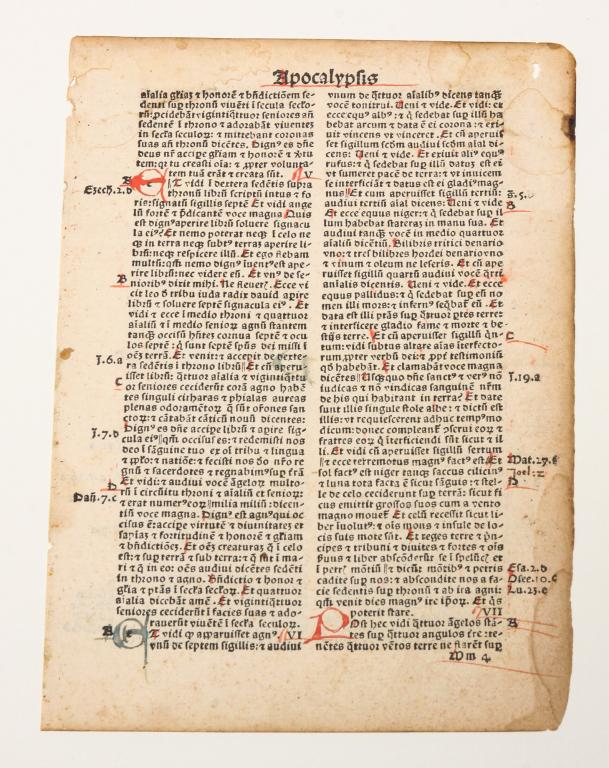 Apocalypsis
aīalia gl̄iaȝ ⁊ honorē ⁊ bn̄dictiōem se-
denti suꝑ thronū viuēti ī secula secło-
rū: ꝓcidebāt vigintiqttuor seniores an̄
sedentē ī throno ⁊ adorabāt viuentem
in secła seculoꝝ: ⁊ mittebant coronas
suas an̄ thronū dicētes. Dign⁹ es dn̄e
deus nr̄ accipe gl̄iam ⁊ honorē ⁊ ꝟtu
tem: qꝛ tu creasti oīa: ⁊ ꝓpter volunta-
tem tuā erāt ⁊ creata sūt. V
Et vidi ī dextera sedētis supra
thronū librū scriptū intus ⁊ fo
ris: signatū sigillis septē. Et vidi ange
lū fortē ⁊ p̄dicantē voce magna. Quis
est dign⁹ aperire librū ⁊ soluere signacu
la ei⁹? Et nemo poterat neqȝ ī celo ne
qȝ in terra neqȝ subt⁹ terraȝ aperire li-
brū: neqȝ respicere illū. Et ego flebam
multū: qm̄ nemo dign⁹ īuent⁹ est ape-
rire librū: nec videre eū. Et vn⁹ de se-
nioribus dixit mihi. Ne fleueris. Ecce vi
cit leo d̄ tribu iuda radix dauid aꝑire
librū ⁊ soluere septē signacula ei⁹. Et
vidi ⁊ ecce ī medio throni ⁊ quattuor
aīaliū ⁊ ī medio senioꝝ agnū stantem
tanqȝ occisū hn̄tē cornua septē ⁊ ocu
los septē: q̄ sunt septē sp̄ūs dei missi ī
oēȝ terrā. Et venit: ⁊ accepit de dexte-
ra sedētis ī throno librū. Et cū aperu
isset librū: qttuor aīalia ⁊ vigintiqttu
or seniores ceciderūt corā agno habē
tes singuli citharas ⁊ phialas aureas
plenas odoramētoꝝ q̄ sūt orōnes san
ctoꝝ: ⁊ cātabāt cāticū nouū dicentes:
Dign⁹ es dn̄e accipe librū ⁊ aꝑire sig-
cula ei⁹: qm̄ occisus es: ⁊ redemisti nos
deo ī sāguine tuo ex oī tribu ⁊ lingua
⁊ pplo ⁊ natiōe: ⁊ fecisti nos dō nr̄o re
gnū ⁊ sacerdotes ⁊ regnabim⁹ suꝑ trā
Et vidi: ⁊ audiui vocē āgeloꝝ multo-
rū ī circūitu throni ⁊ aīaliū ⁊ senioꝝ:
⁊ erat numer⁹ eoꝝ milia miliū: dicen-
tiū voce magna. Dign⁹ est agn⁹ qui oc
cisus ē: accipe virtutē ⁊ diuinitatē ⁊
sapiaȝ ⁊ fortitudinē ⁊ honorē ⁊ gl̄iam
⁊ bn̄dictiōeȝ. Et oēȝ creaturaȝ q̄ ī celo
est: ⁊ suꝑ terrā ⁊ sub terra: ⁊ q̄ sūt ī ma-
ri ⁊ q̄ in eo: oēs audiui dicētes sedēti
in throno ⁊ agno. Bn̄dictio ⁊ honor ⁊
gl̄ia ⁊ ptās ī secła secłoꝝ. Et quattuor
aīalia dicebāt amē. Et vigintiqttuor
seniores ceciderūt ī facies suas ⁊ ado-
rauerūt viuētē ī secła seculoꝝ. VI
Et vidi qꝫ apparuisset agn⁹
vnū de septem sigillis: ⁊ audiui
vnum de qttuor aīalib⁹ dicens tanqȝ
vocē tonitrui. Ueni ⁊ vide. Et vidi: et
ecce equ⁹ alb⁹: ⁊ q̄ sedebat suꝑ illū ha
bebat arcum ⁊ data ē ei corona: ⁊ exi-
uit vincens vt vinceret. Et cū aperuis
set sigillum scd̄m audiui scd̄m aīal di-
cens: Ueni ⁊ vide. Et exiuit ali⁹ equ⁹
rufus: ⁊ q̄ sedebat suꝑ illū datuȝ est ei
vt sumeret pacē de terra: ⁊ vt inuicem
se interficiāt ⁊ datus est ei gladi⁹ mag-
n⁹. Et cum aperuisset sigillū tertiū:
audiui tertiū aīal dicens: Ueni ⁊ vide
Et ecce equus niger: ⁊ q̄ sedebat suꝑ il
lum habebat stateraȝ in manu sua. Et
audiui tanqȝ vocē in medio quattuor
aīaliū dicētiū. Bilibris tritici denario
vno: ⁊ tres bilibres hordei denario vno
⁊ vinum ⁊ oleum ne leseris. Et cū ape
ruisset sigillū quartū audiui vocē qrti
aīalis dicentis. Ueni ⁊ vide. Et ecce
equus pallidus: ⁊ q̄ sedebat suꝑ eū no
men illi mors: ⁊ infern⁹ seqbat̄ eū. Et
data est illi ptās suꝑ qttuor ptēs terre:
⁊ interficere gladio fame ⁊ morte ⁊ be-
stijs terre. Et cū aperuisset sigillū qn̄-
tum: vidi subtus altare aīas īterfecto-
rum ꝓpter verbū dei: ⁊ ꝓpt̄ testimoniū
qd̄ habebāt. Et clamabāt voce magna
dicētes: Usqȝquo dn̄e sanct⁹ ⁊ ver⁹ nō
iudicas ⁊ nō vindicas sanguinē nr̄m
de his qui habitant in terra? Et date
sunt illis singule stole albe: ⁊ dictū est
illis: vt requiescerent adhuc temp⁹ mo
dicum: donec compleant̄ ꝯserui eoꝝ ⁊
fratres eoꝝ q̄ īterficiendi sūt sicut ⁊ il
li. Et vidi cū aperuisset sigillū sextum
⁊ ecce terremotus magn⁹ fact⁹ est: ⁊
sol fact⁹ est niger tanqȝ saccus cilicin⁹
⁊ luna tota facta ē sicut sāguis: ⁊ stel-
le de celo ceciderunt suꝑ terrā: sicut fi
cus emittit grossos suos cum a vento
magno mouet̄. Et celū recessit sicut li-
ber īuolut⁹: ⁊ oīs mons ⁊ insule de lo-
cis suis mote sūt. Et reges terre ⁊ pn̄-
cipes ⁊ tribuni ⁊ diuites ⁊ fortes ⁊ oīs
ẜuus ⁊ liber abscōderūt se ī speluncis et
ī petris mōtiū: ⁊ dicūt mōtib⁹ ⁊ petris
cadite suꝑ nos: ⁊ abscondite nos a fa-
cie sedentis suꝑ thronū ⁊ ab ira agni:
qm̄ venit dies magn⁹ ire ipoꝝ. Et q̄s
poterit stare. VII
Post hec vidi qttuor āgelos stā-
tes suꝑ qttuor angulos t̄re: te-
nētes qttuor vētos terre ne flarēt suꝑ
Mm 4
A
Ezech. 2. d
B
J. 6. a
C
J. 7. d
D
Dan̄. 7. c
A
B
C
J. 19. a
Mat. 27. e
Joel. 2
D
Esa. 2. d
Osee. 10. c
Lu. 23. c
A